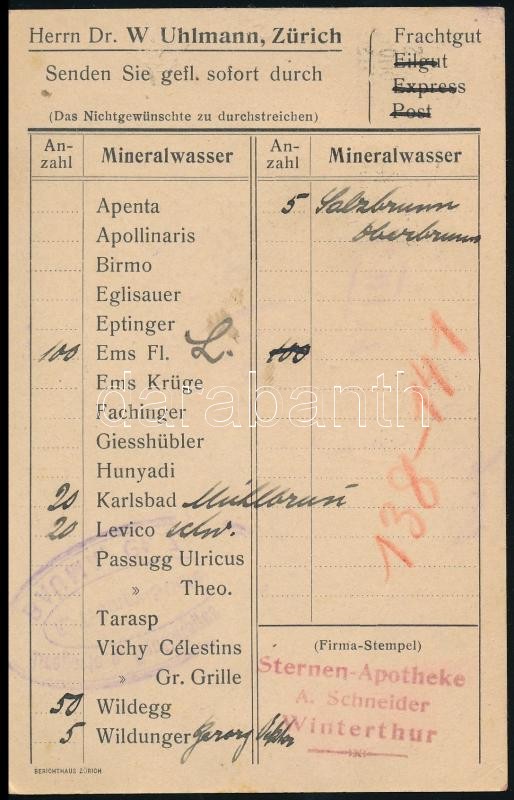 Herrn Dr. W. Uhlmann, Zürich
Senden Sie gefl. sofort durch
(Das Nichtgewünschte zu durchstreichen)
Frachtgut
Eilgut
Express
Post
An-zahl Mineralwasser An-zahl Mineralwasser
Apenta 5 Salzbrunn
Apollinaris Oberbrunn
Birmo
Eglisauer
Eptinger
100 Ems Fl. L. 100
Ems Krüge
Fachinger
Giesshübler
Hunyadi
20 Karlsbad Mühlbrun
20 Levico schw.
Passugg Ulricus
» Theo.
Tarasp
Vichy Célestins
» Gr. Grille
50 Wildegg
5 Wildunger Georg Viktor
138-141
(Firma-Stempel)
Sternen-Apotheke
A. Schneider
Winterthur
BERICHTHAUS ZÜRICH
darabanth